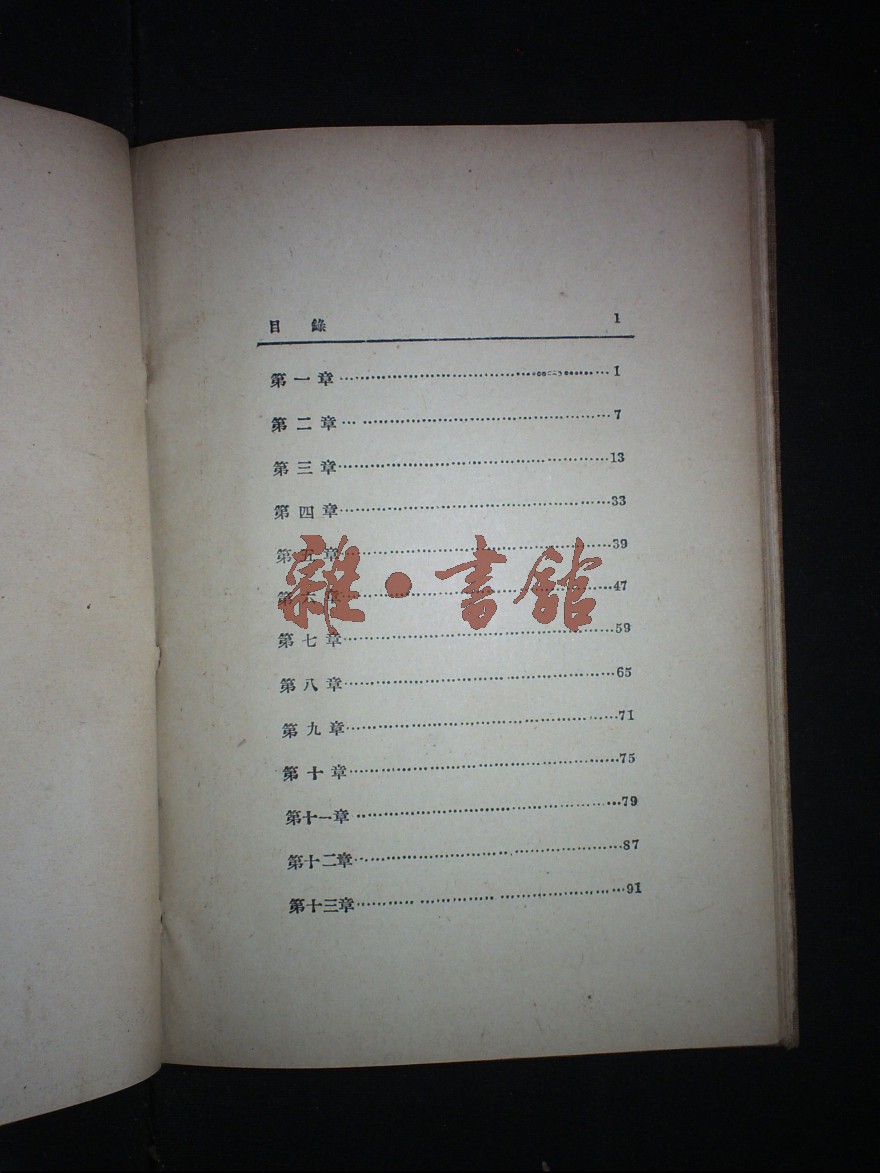 目 錄 1
第一章…………………………1
第二章…………………………7
第三章…………………………13
第四章…………………………33
第五章…………………………39
雜·書館
第六章…………………………47
第七章…………………………59
第八章…………………………65
第九章…………………………71
第十章…………………………75
第十一章…………………………79
第十二章…………………………87
第十三章…………………………91